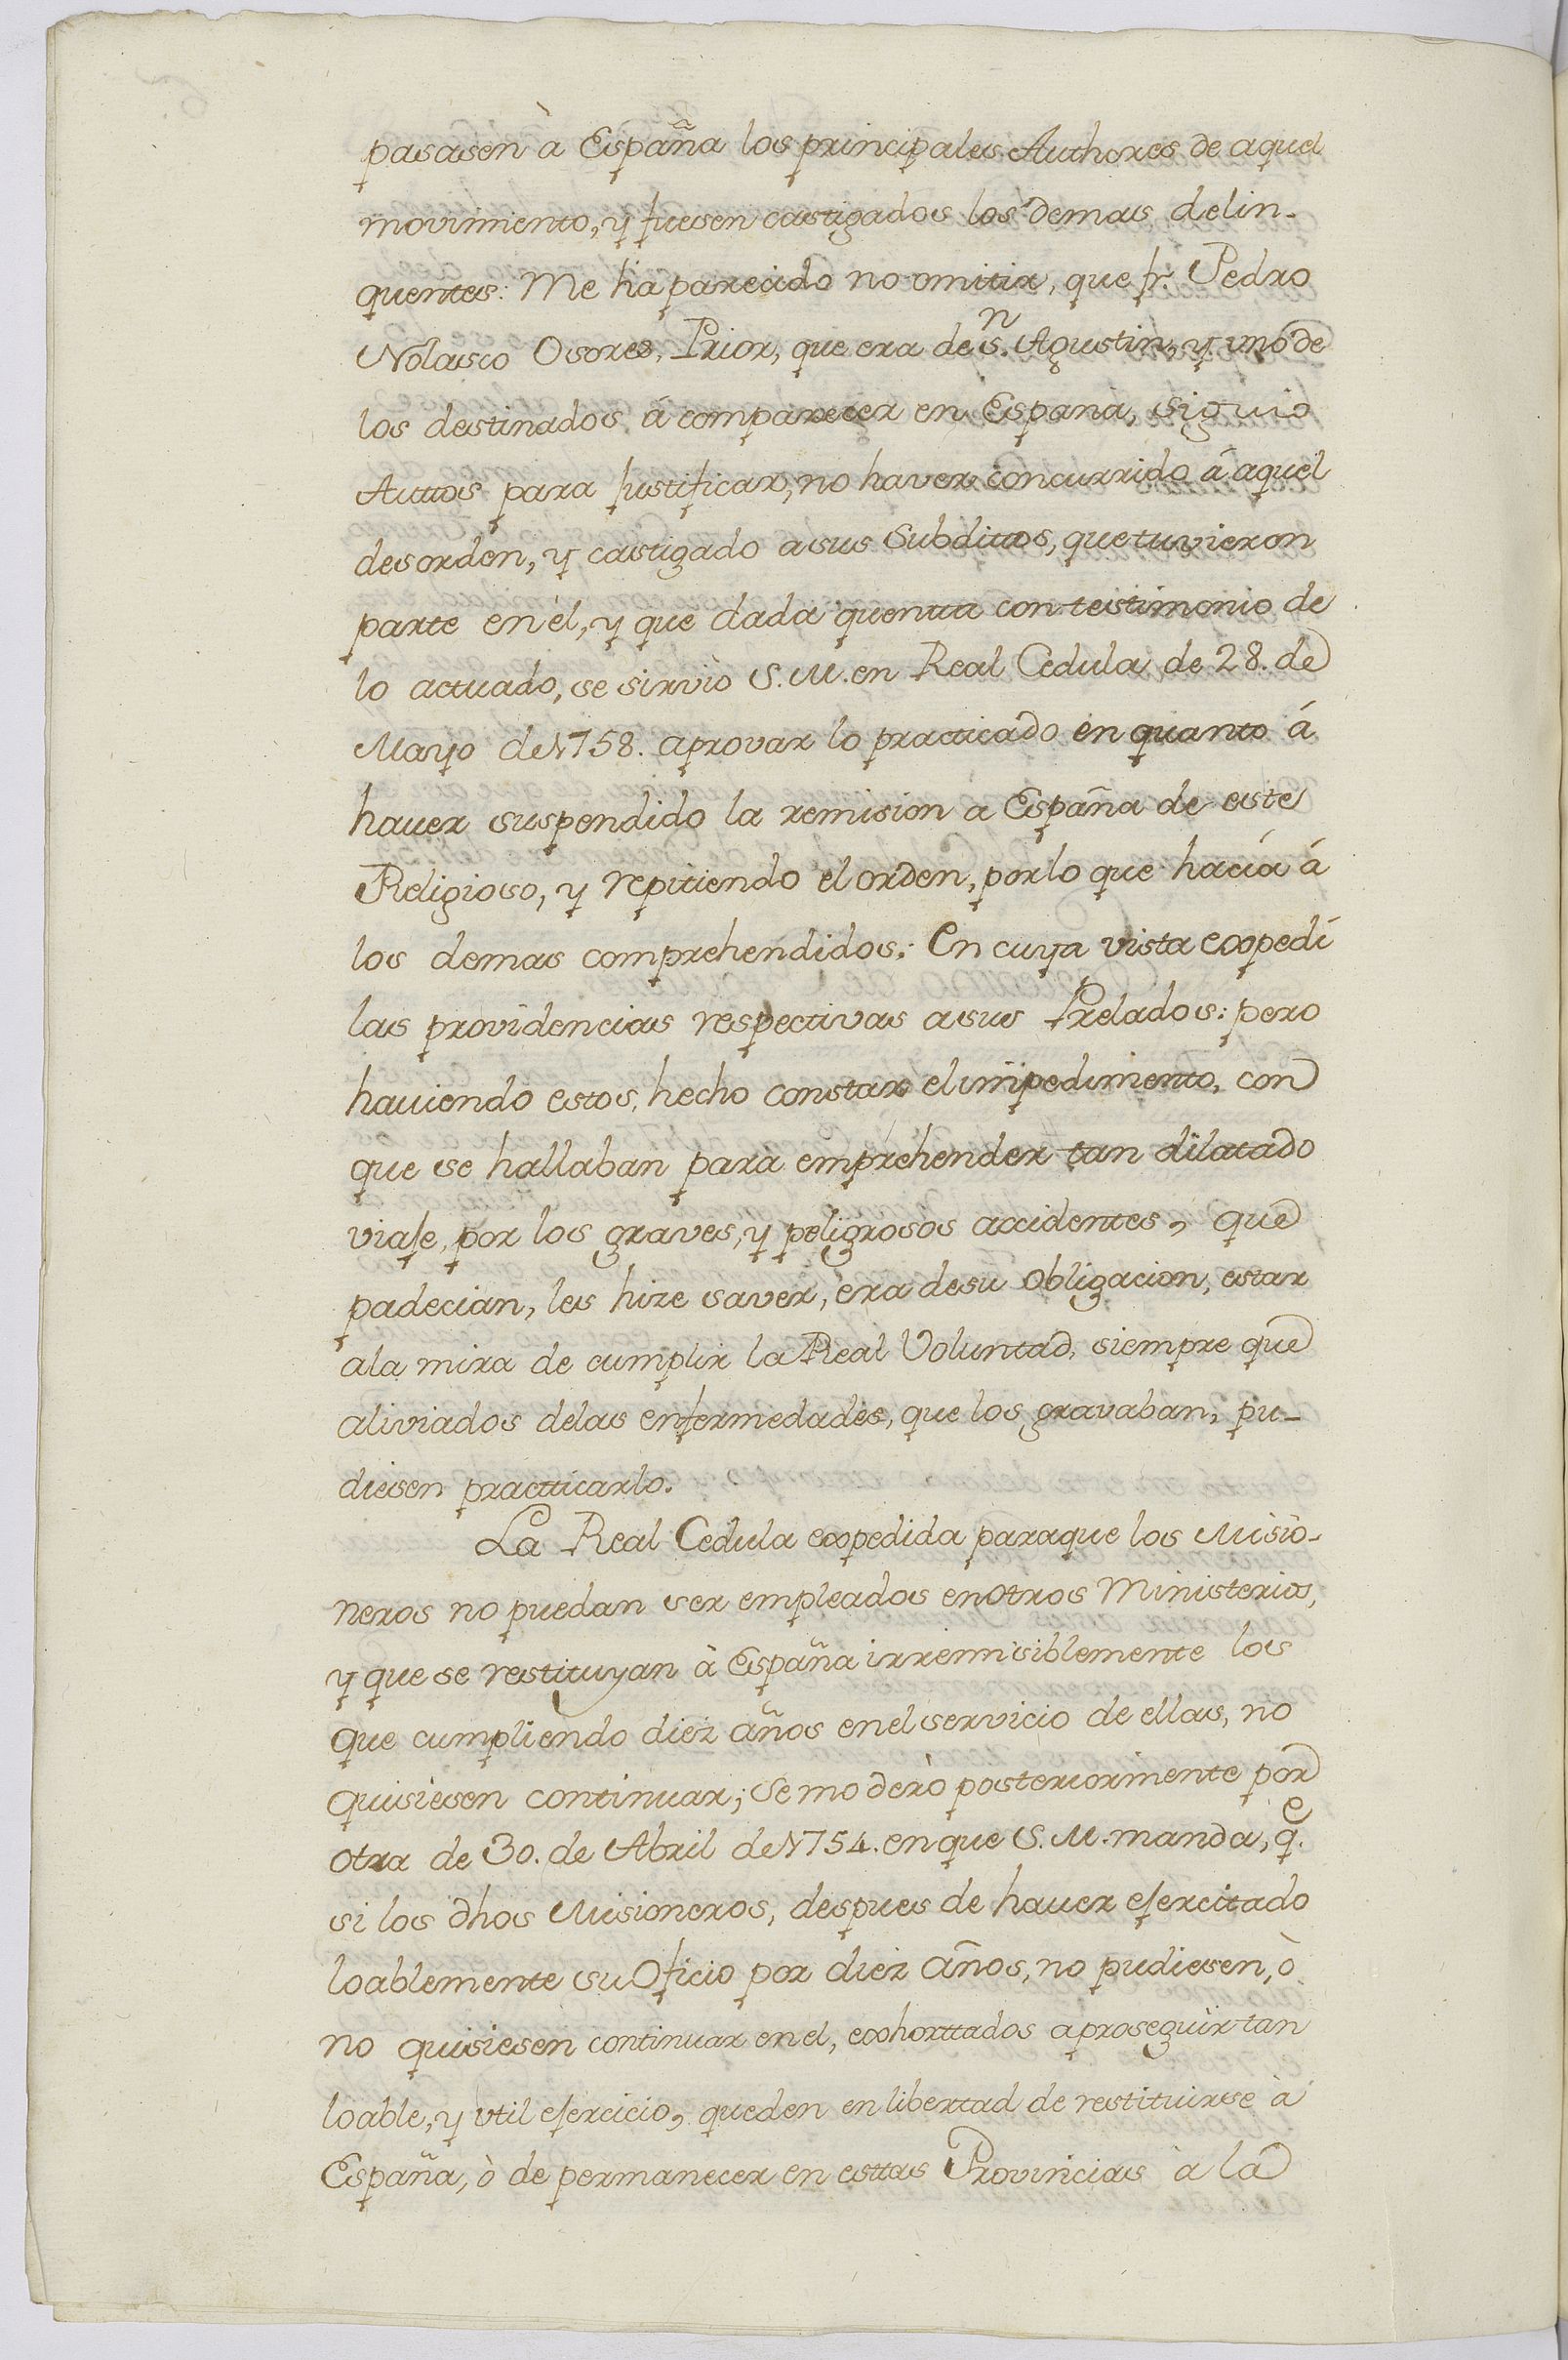 pasasen à España los principales Authores de aquel
movimiento, y fuesen castigados los demas delin-
quentes: Me ha parecido no omitir, que fr. Pedro
Nolasco Osores, Prior, que era de Sn. Agustin, y uno de
los destinados á comparecer en España, siguio
Auttos para justificar, no haver concurrido á aquel
desorden, y castigado a sus Subdittos, que tuvieron
parte en èl, y que dada quentta con testimonio de
lo actuado, se sirviò S. M. en Real Cedula de 28. de
Mayo de 1758. aprovar lo practicado en quanto á
haver suspendido la remision a España de este
Religioso, y repitiendo el orden, por lo que hacía á
los demas comprehendidos: En cuya vista expedí
las providencias respectivas a sus Prelados: pero
haviendo estos, hecho constar el impedimento, con
que se hallaban para emprehender tan dilatado
viaje, por los graves, y peligrosos accidentes, que
padecian, les hize saver, era de su obligacion, estar
a la mira de cumplir la Real Voluntad, siempre que
aliviados de las enfermedades, que los gravaban, pu-
diesen practticarlo.
La Real Cedula expedida para que los Misio-
neros no puedan ser empleados en otros Ministerios,
y que se restituyan à España irremisiblemente los
que cumpliendo diez años en el servicio de ellas, no
quisiesen continuar; Se moderò posteriormente por
otra de 30. de Abril de 1754. en que S. M. manda, qe.
si los dhos Misioneros, despues de haver ejercitado
loablemente su Oficio por diez años, no pudiesen, ò
no quisiesen continuar en el, exhorttados a proseguir tan
loable, y vtil ejercicio, queden en libertad de restituirse à
España, ò de permanecer en esttas Provincias à la